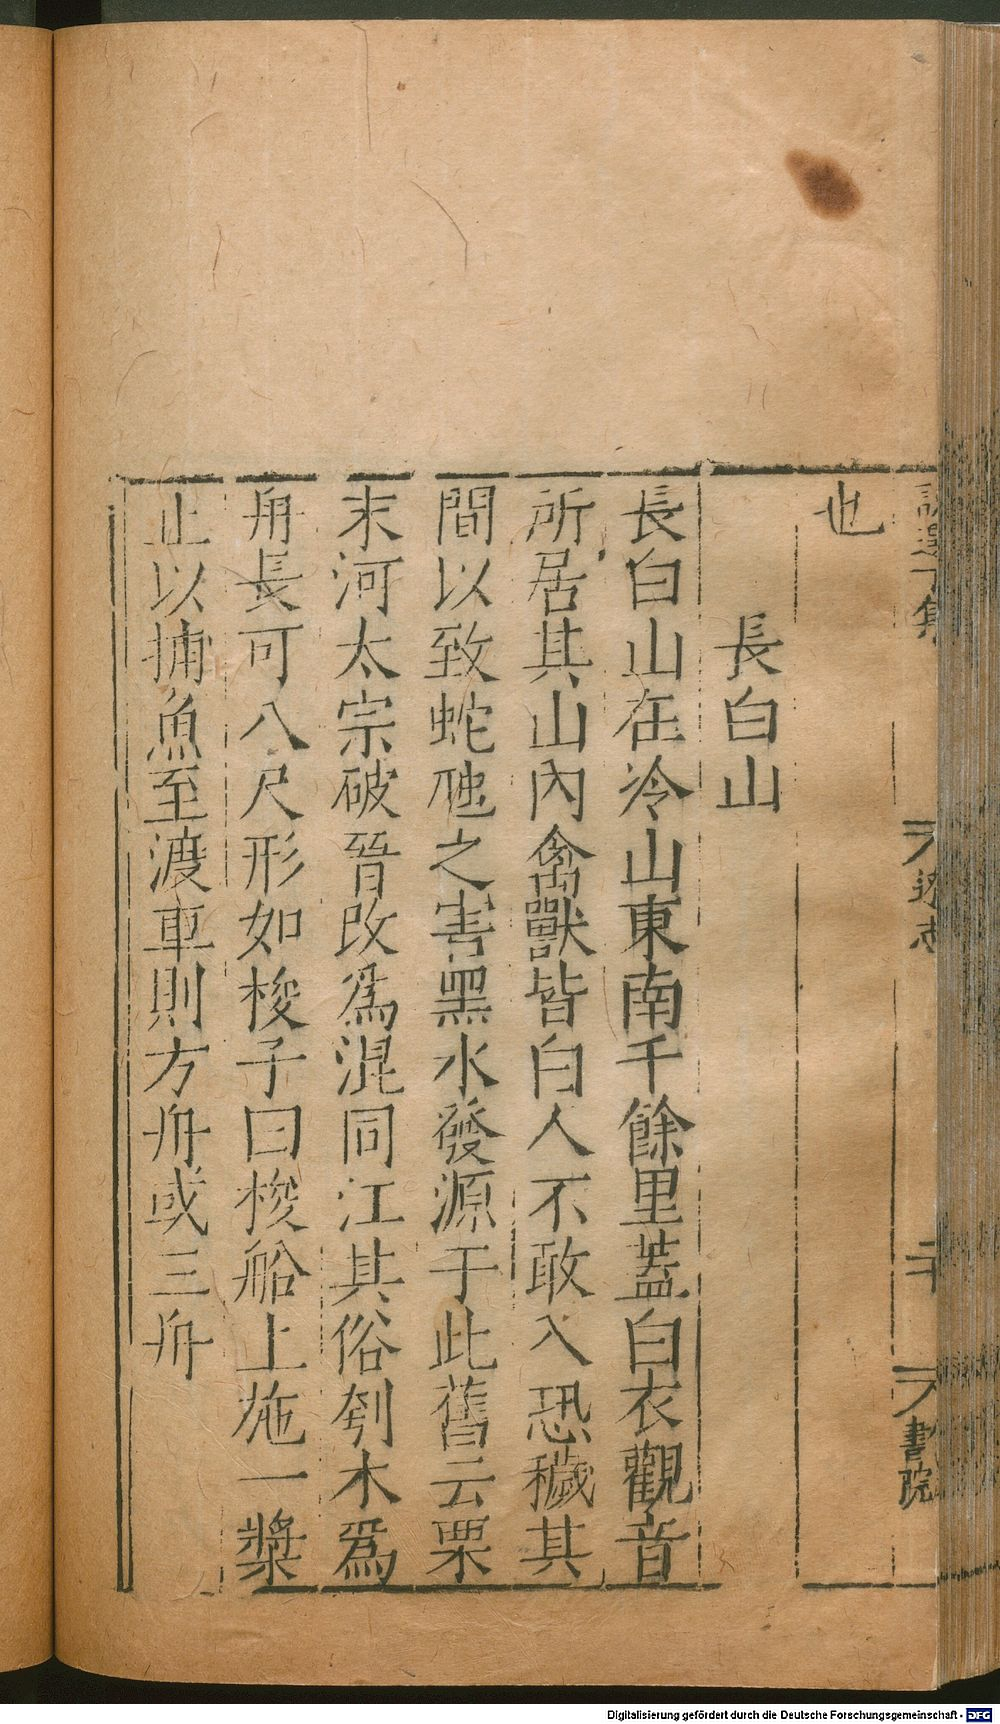 也
長白山
長白山在冷山東南千餘里蓋白衣觀音
所居其山內禽獸皆白人不敢入恐穢其
間以致蛇虺之害黑水發源于此舊云粟
末河太宗破晉改爲混同江其俗刳木爲
舟長可八尺形如梭子曰梭船上施一槳
止以捕魚至渡車則方舟或三舟
遼志
二十
書院
Digitalisierung gefördert durch die Deutsche Forschungsgemeinschaft - DFG